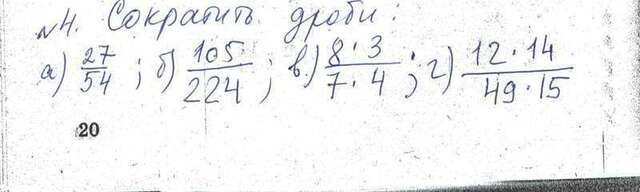 №4. Сократить дроби:
а) 27/54 ; б) 105/224 ; в) 8·3/7·4 ; г) 12·14/49·15
20